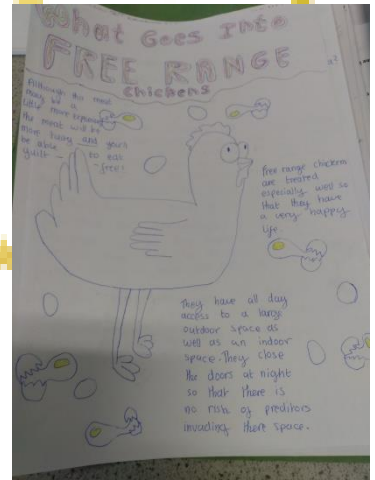 What Goes Into
FREE RANGE
Chickens
Although the meat
may be a
little more expensive
the meat will be
more tasty and you'll
be able to eat
guilt - free!
free range chickens
are treated
especially well so
that they have
a very happy
life.
They have all day
access to a large
outdoor space as
well as an indoor
space. They close
the doors at night
so that there is
no risk of preditors
invading there space.